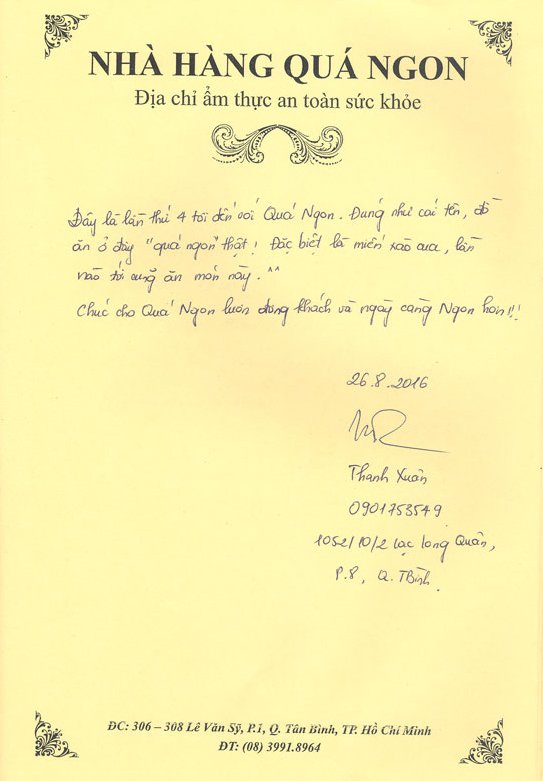 NHÀ HÀNG QUÁ NGON
Địa chỉ ẩm thực an toàn sức khỏe
Đây là lần thứ 4 tôi đến với Quá Ngon. Đúng như cái tên, đồ
ăn ở đây "quá ngon" thật! Đặc biệt là miến xào cua, lần
nào tới cũng ăn món này. ^^
Chúc cho Quá Ngon luôn đông khách và ngày càng Ngon hơn!!!
26.8.2016
Thanh Xuân
0901753549
1052/10/2 Lạc Long Quân,
P.8, Q. TBình.
ĐC: 306 – 308 Lê Văn Sỹ, P.1, Q. Tân Bình, TP. Hồ Chí Minh
ĐT: (08) 3991.8964